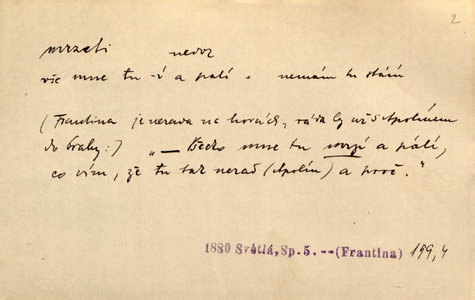 2
mrzeti nedok
vše mne tu -í a pálí . nemám tu stání
(Frantina je nerada na horách, ráda by už s Apolínem
do Prahy:) „— Všecko mne tu mrzí a pálí,
co vím, že tu tak nerad (Apolín) a prvé."
1880 Světlá, Sp. 5. -- (Frantina) 199,4